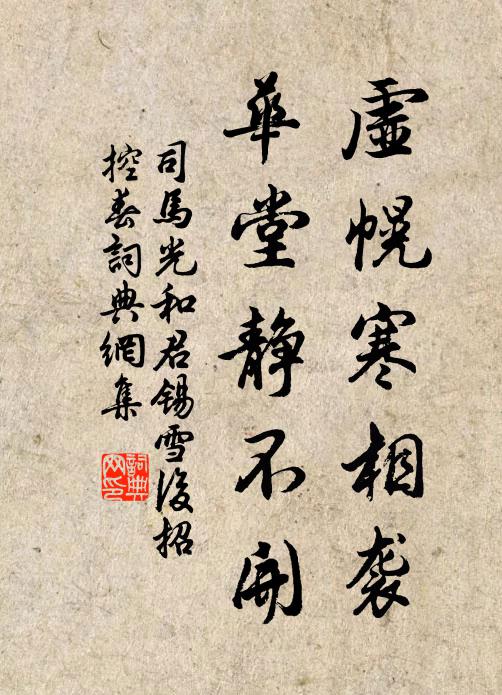 虛幌寒相襲
華堂靜不開
司馬光和君錫雪後招
探春詞典網集
詞典
网印